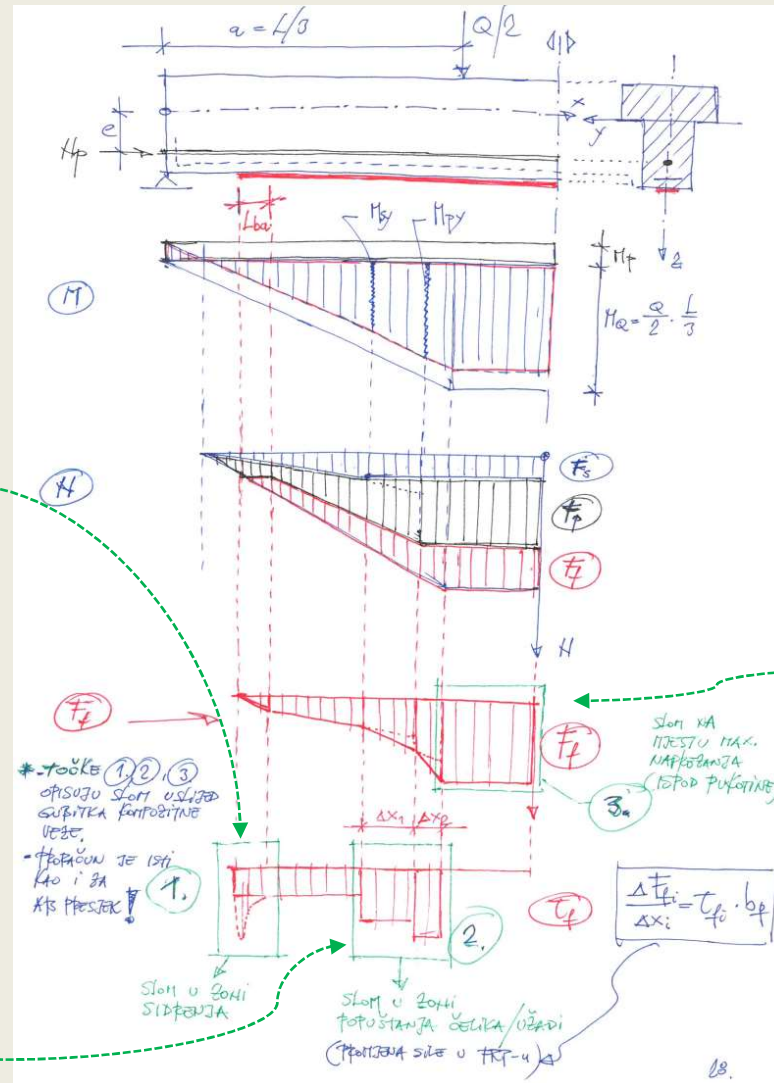 a = L/3
Q/2
x
y
e
Hp
z
Lba
Msy
Mpy
Mp
M
MQ = Q/2 · L/3
Fs
H
Fp
Ff
H
Ff
Ff
SLOM NA
MJESTU MAX.
NAPREZANJA
(ISPOD PUKOTINE)
3.
* - TOČKE 1, 2, 3
OPISUJU SLOM USLIJED
GUBITKA KOMPOZITNE
VEZE.
- PRORAČUN JE ISTI
KAO I ZA
AB PRESJEK!
Δx1
Δx2
1.
2.
τf
ΔFfi/Δxi = τfi · bf
SLOM U ZONI
SIDRENJA
SLOM U ZONI
POPUŠTANJA ČELIKA/UŽADI
(PROMJENA SILE U FRP-u)
28.